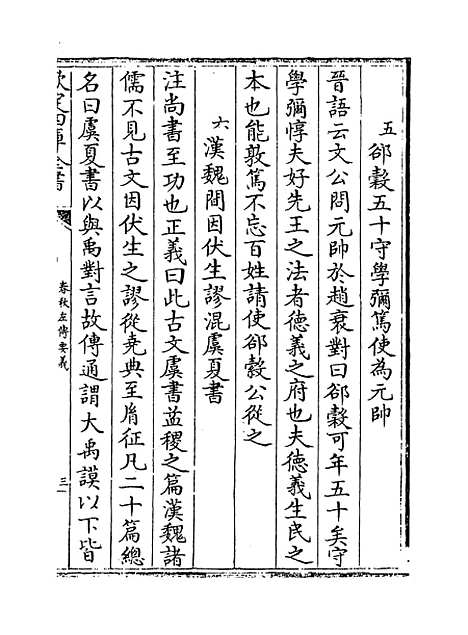 五郤縠五十守學彌篤使為元帥
晉語云文公問元帥於趙衰對曰郤縠可年五十矣守
學彌惇夫好先王之法者徳義之府也夫徳義生民之
本也能敦篤不忘百姓請使郤縠公從之
六漢魏間因伏生謬混虞夏書
注尚書至功也正義曰此古文虞書益稷之篇漢魏諸
儒不見古文因伏生之謬從堯典至胤征凡二十篇總
名曰虞夏書以與禹對言故傳通謂大禹謨以下皆
欽定四庫全書
春秋左傳要義
三